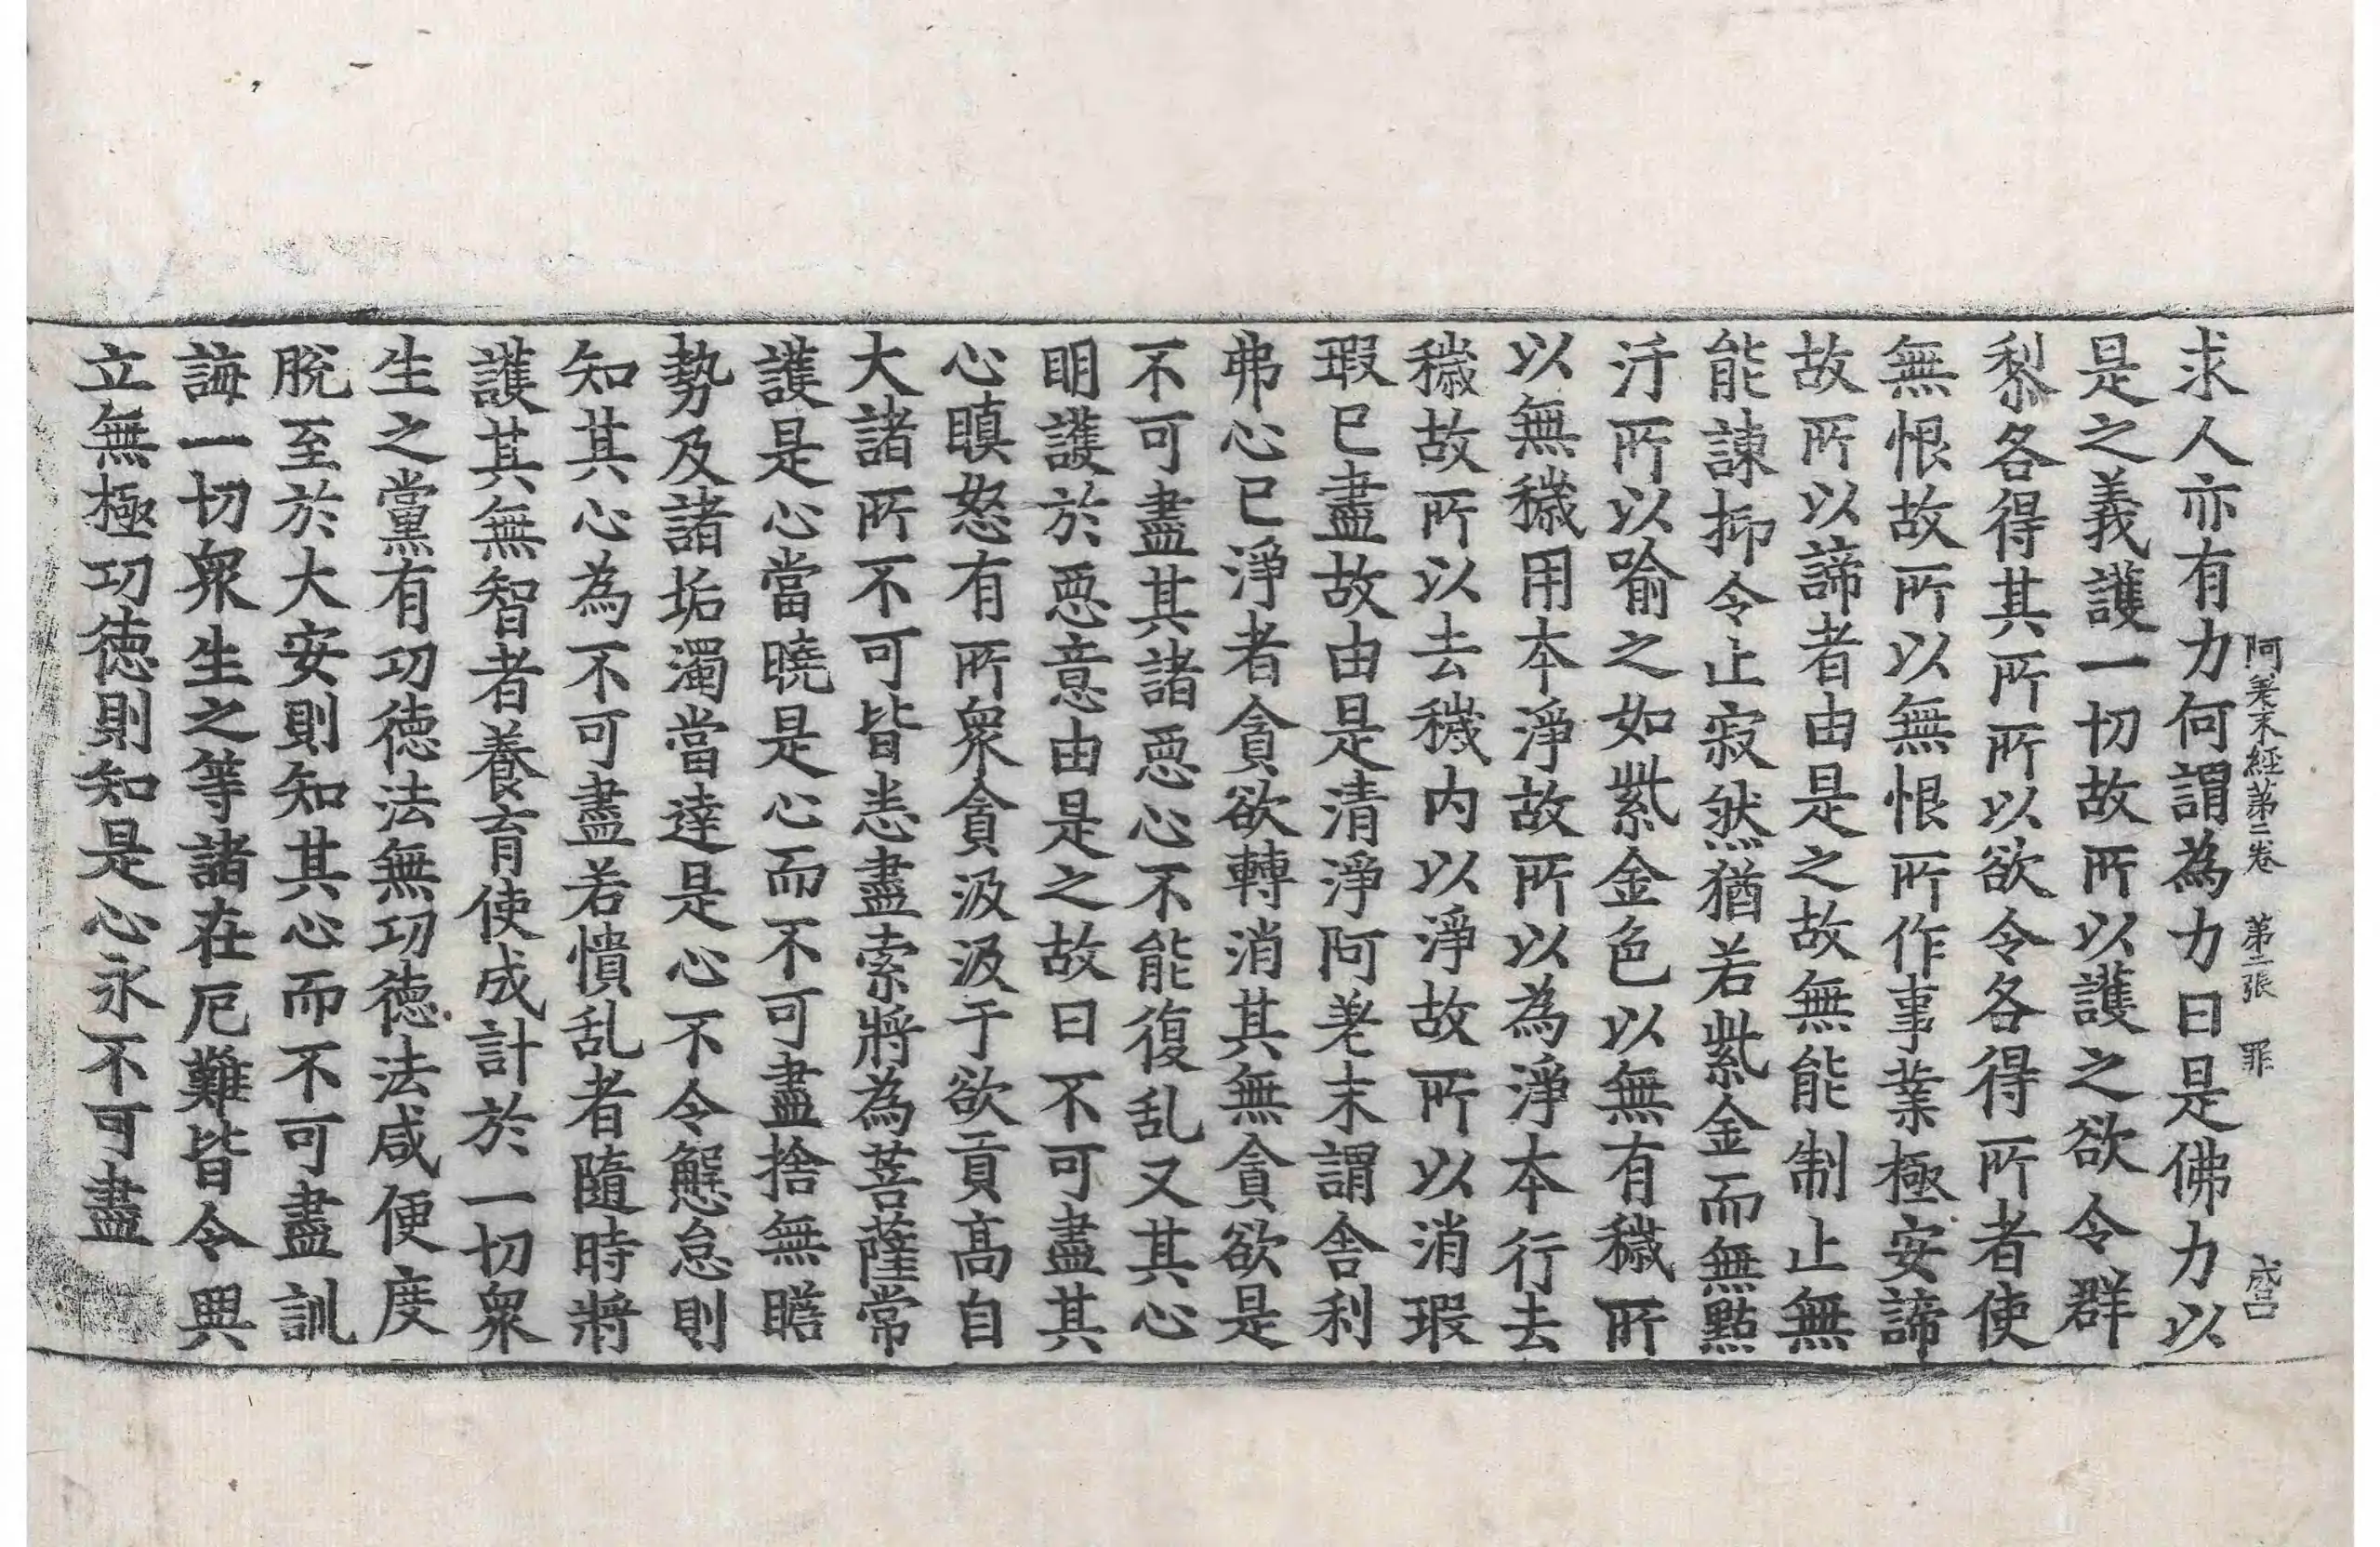 阿差末經第二卷　第二張　罪　成呂
求人亦有力何謂為力曰是佛力以
是之義護一切故所以護之欲令群
黎各得其所所以欲令各得所者使
無恨故所以無恨所作事業極安諦
故所以諦者由是之故無能制止無
能諫抑令止寂然猶若紫金而無點
汙所以喻之如紫金色以無有穢所
以無穢用本淨故所以為淨本行去
穢故所以去穢內以淨故所以消瑕
瑕已盡故由是清淨阿差末謂舍利
弗心已淨者貪欲轉消其無貪欲是
不可盡其諸惡心不能復乱又其心
明護於惡意由是之故曰不可盡其
心瞋怒有所衆貪汲汲于欲貢高自
大諸所不可皆恚盡索將為菩薩常
護是心當曉是心而不可盡捨無瞻
勢及諸垢濁當達是心不令懈怠則
知其心為不可盡若憒乱者隨時將
護其無智者養育使成計於一切衆
生之黨有功德法無功德法咸使度
脫至於大安則知其心而不可盡訓
誨一切衆生之等諸在厄難皆令興
立無極功德則知是心永不可盡